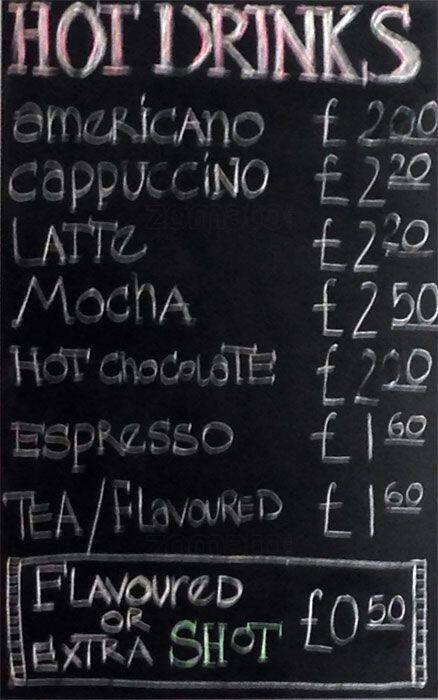 HOT DRINKS
americano £2.00
cappuccino £2.20
LATTe £2.20
Mocha £2.50
HOT chocolate £2.20
ESPRESSO £1.60
TEA/FLAVOURED £1.60
FLAVOUReD
OR
EXTRA SHOT £0.50
zomato
zomato